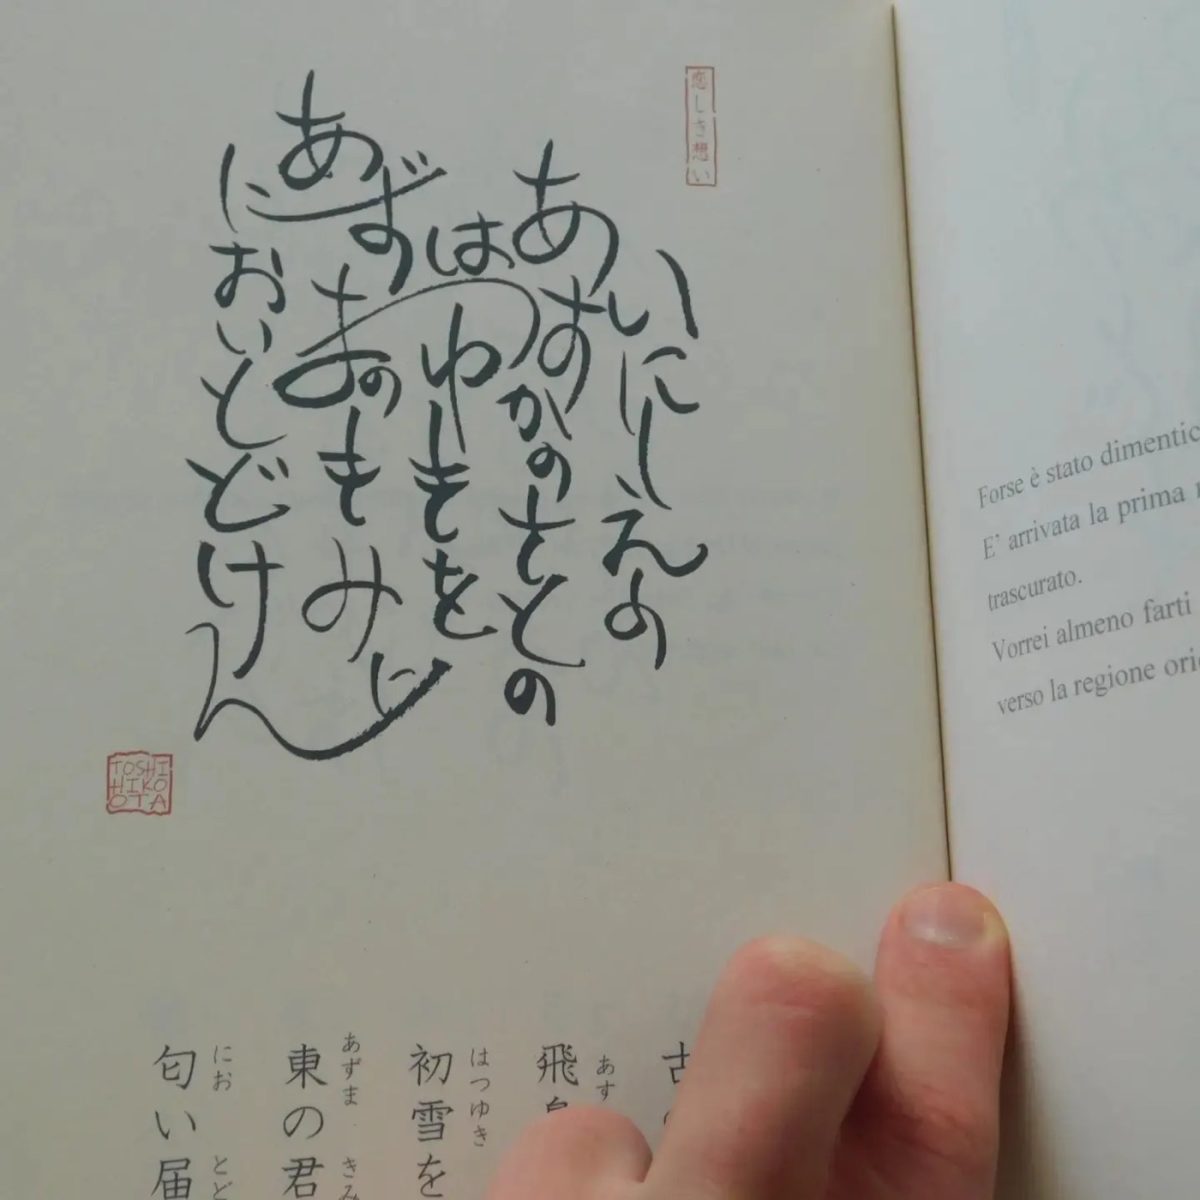 恋しき想い
いにしえの
あすかのさとの
はつゆきを
あずまのきみに
においとどけん
TOSHI
HIKO
OTA
古
あす
飛
はつゆき
初雪を
あずま きみ
東の君
にお とど
匂い届
Forse è stato
E' arrivata la prima
trascurato.
Vorrei almeno farti
verso la regione